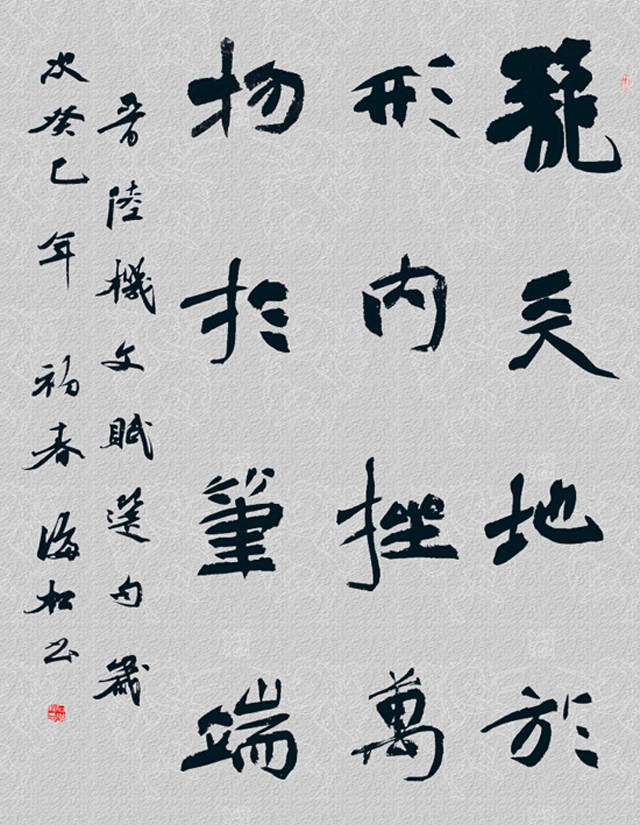 籠天地於
形内挫萬
物於筆端
晋陸機文賦選句歲
次癸巳年初春海松书